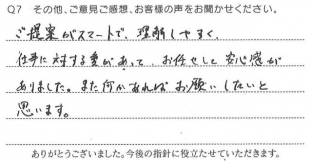 Q7 その他、ご意見ご感想、お客様の声をお聞かせください。
ご提案がスマートで、理解しやすく、
仕事に対する愛があって、お任せして安心感が
ありました。また何かあればお願いしたいと
思います。
ありがとうございました。今後の指針に役立たせていただきます。